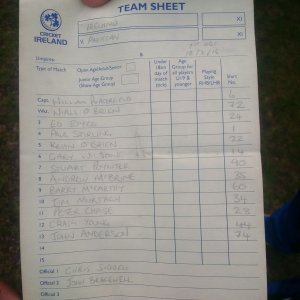 TEAM SHEET
CRICKET
IRELAND
IRELAND XI
V. PAKISTAN XI
Umpires:
Type of Match
Open Age/Adult/Senior
Junior Age Group
(Show Age Group)
Under 18 on day of match (tick)
Age Group for all players U19 & younger
Playing Style RHB/LHB
Shirt Nos
Capt. WILLIAM PORTERFIELD 6
Wkt NIALL O'BRIEN 72
3 ED JOYCE 24
4 PAUL STIRLING 1
5 KEVIN O'BRIEN 22
6 GARY WILSON 14
7 STUART POYNTER 40
8 ANDREW McBRINE 35
9 BARRY McCARTHY 60
10 TIM MURTAGH 34
11 PETER CHASE 28
12 CRAIG YOUNG 44
13 JOHN ANDERSON 74
14
15
Official 1 CHRIS SIDDELL
Official 2 JOHN BRACEWELL
Official 3